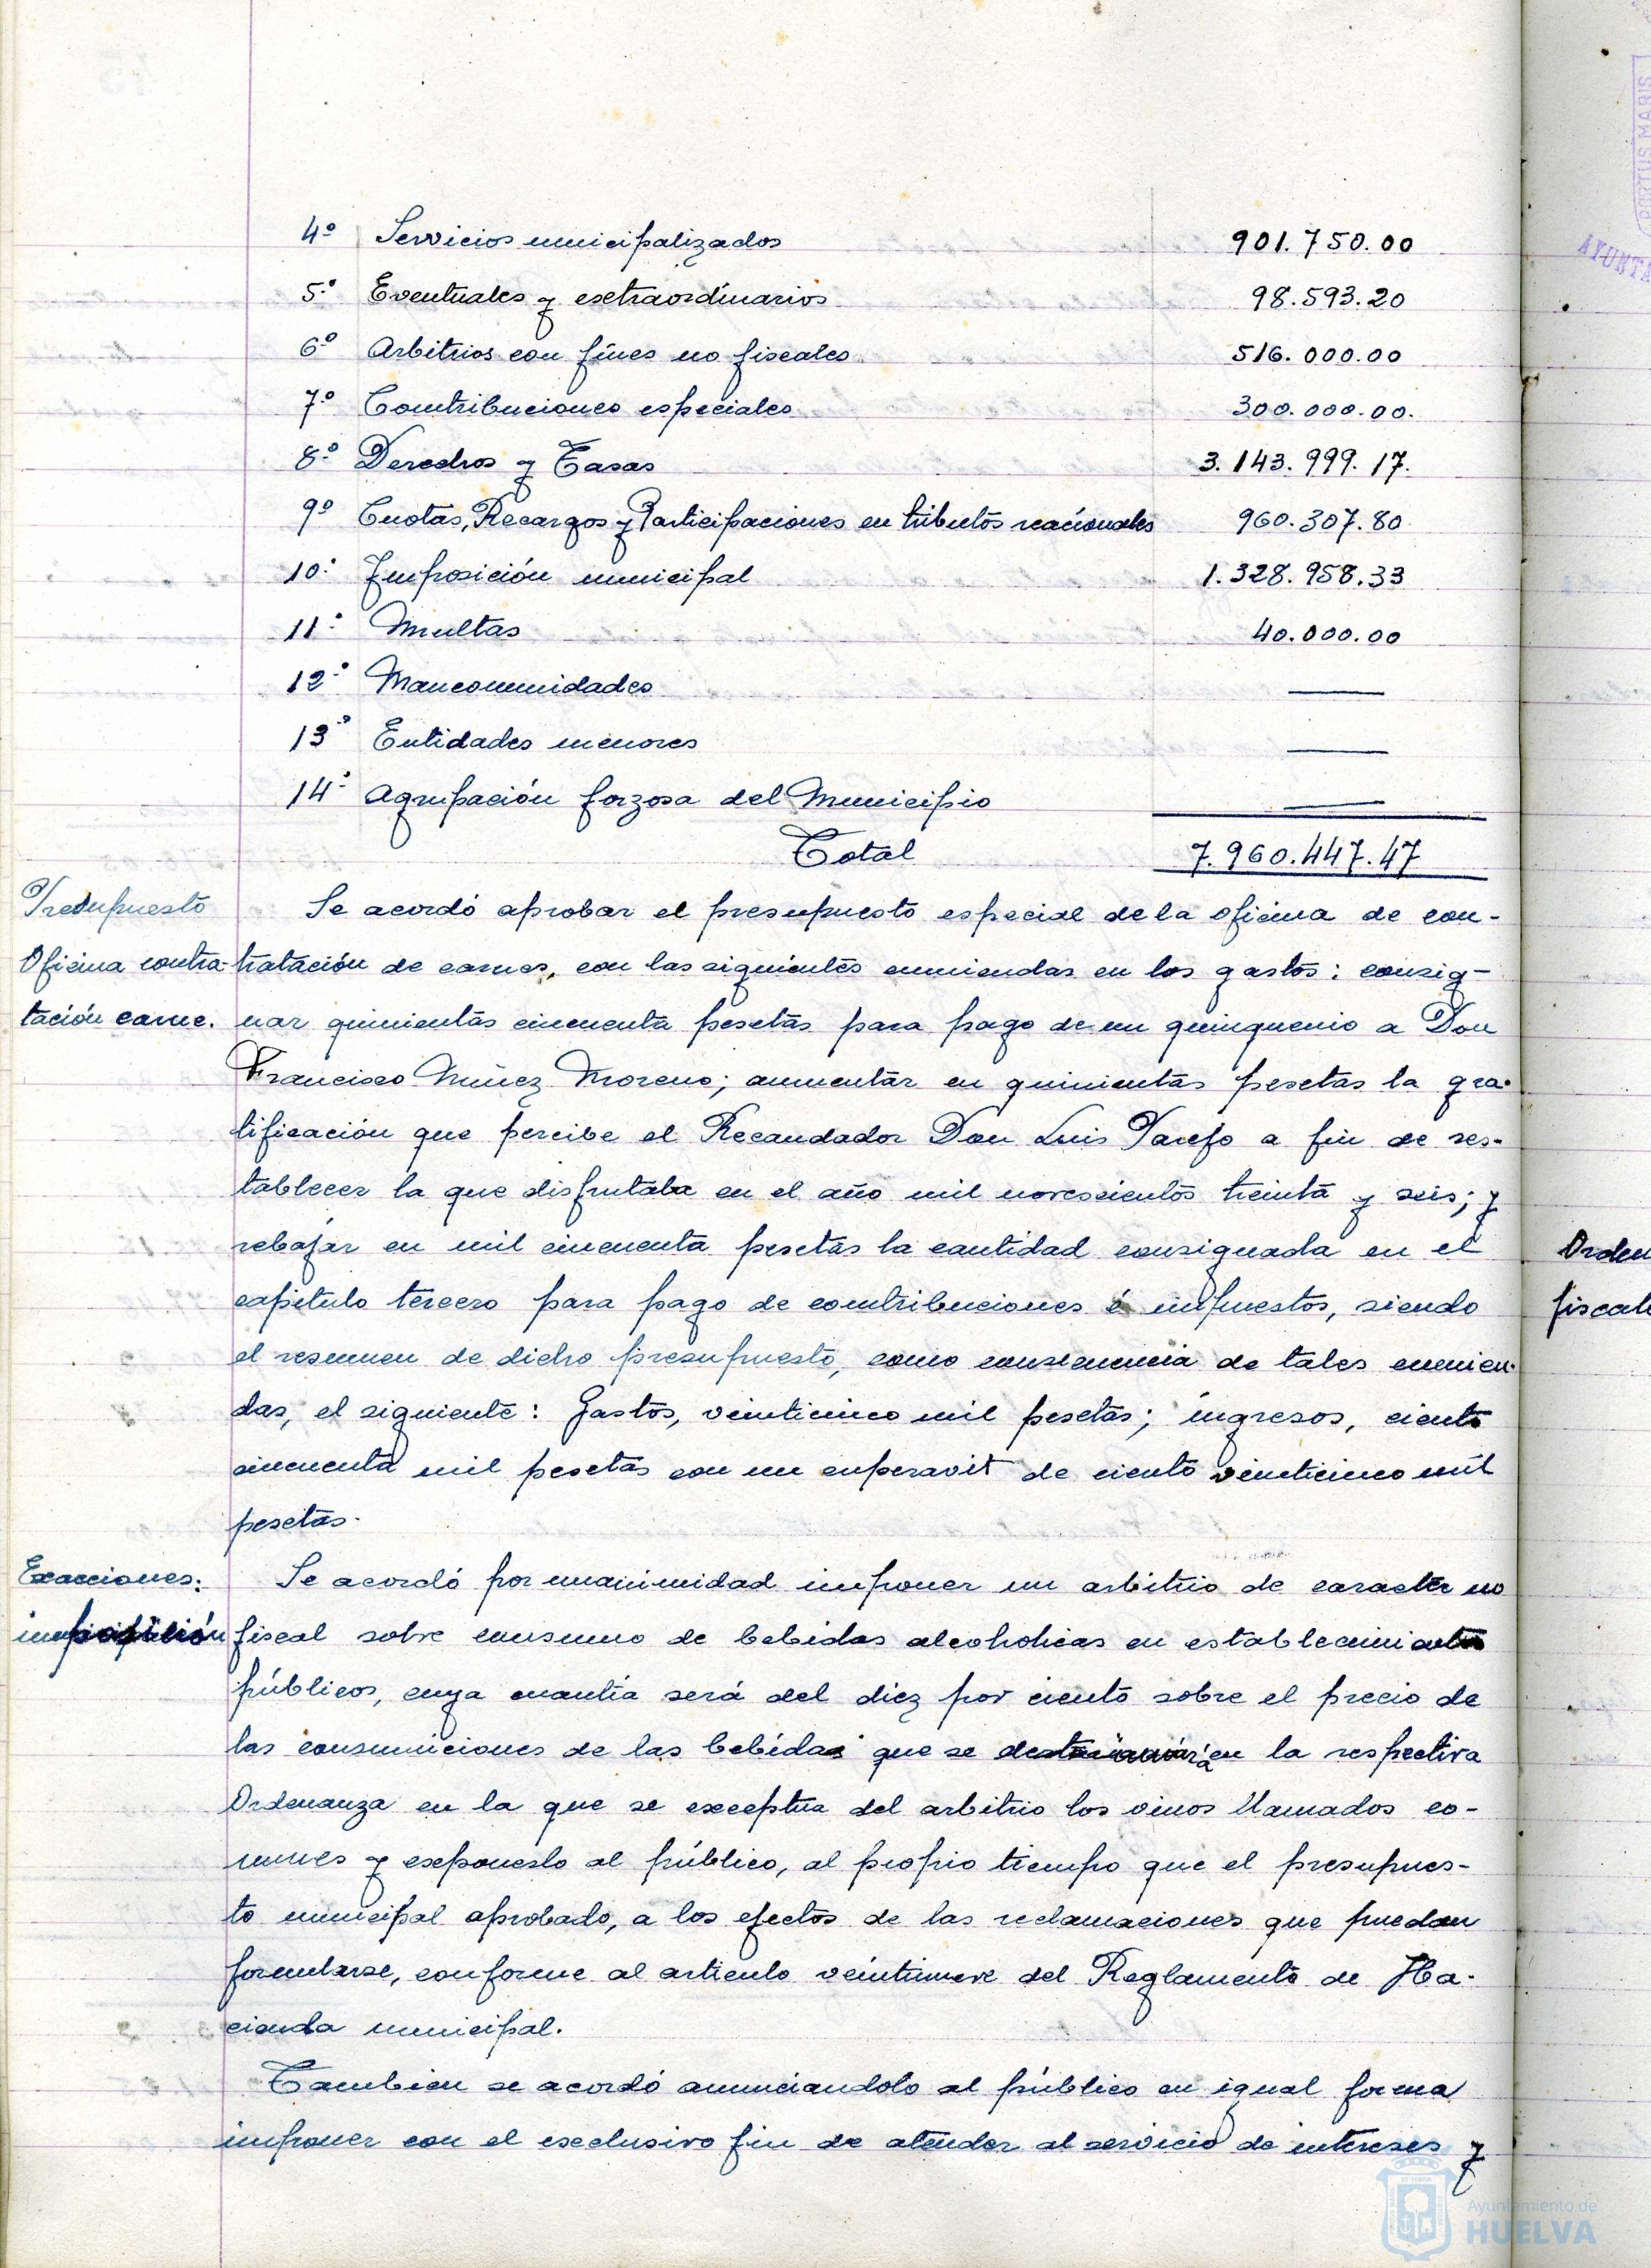 4º Servicios municipalizados 901.750.00
5º Eventuales y extraordinarios 98.593.20
6º Arbitrios con fines no fiscales 516.000.00
7º Contribuciones especiales 300.000.00.
8º Derechos y Tasas 3.143.999.17.
9º Cuotas, Recargos y Participaciones en tributos nacionales 960.307.80
10º Imposición municipal 1.328.958.33
11º Multas 40.000.00
12º Mancomunidades ———
13º Entidades menores ———
14º Agrupación forzosa del Municipio ———
Total 7.960.447.47
Presupuesto
Oficina contra-
tación carne.
Se acordó aprobar el presupuesto especial de la oficina de con-
tratación de carnes, con las siguientes enmiendas en los gastos: consig-
nar quinientas cincuenta pesetas para pago de un quinquenio a Don
Francisco Núñez Moreno; aumentar en quinientas pesetas la gra-
tificación que percibe el Recaudador Don Luis Parejo a fin de res-
tablecer la que disfrutaba en el año mil novescientos treinta y seis; y
rebajar en mil cincuenta pesetas la cantidad consignada en el
capítulo tercero para pago de contribuciones é impuestos, siendo
el resumen de dicho presupuesto, como consecuencia de tales enmien-
das, el siguiente: Gastos, veinticinco mil pesetas; ingresos, ciento
cincuenta mil pesetas con un superavit de ciento veinticinco mil
pesetas.
Exacciones:
imposición
Se acordó por unanimidad imponer un arbitrio de caracter no
fiscal sobre consumo de bebidas alcoholicas en establecimientos
públicos, cuya cuantía será del diez por ciento sobre el precio de
las consumiciones de las bebidas que se en la respectiva
Ordenanza en la que se exceptúa del arbitrio los vinos llamados co-
munes y exponerlo al público, al propio tiempo que el presupues-
to municipal aprobado, a los efectos de las reclamaciones que puedan
formularse, conforme al articulo veintinueve del Reglamento de Ha-
cienda municipal.
Tambien se acordó anunciandolo al público en igual forma
imponer con el exclusivo fin de atender al servicio de intereses y
Orden
fiscale
PORTUS MARIS
AYUNTA
Ayuntamiento de
HUELVA